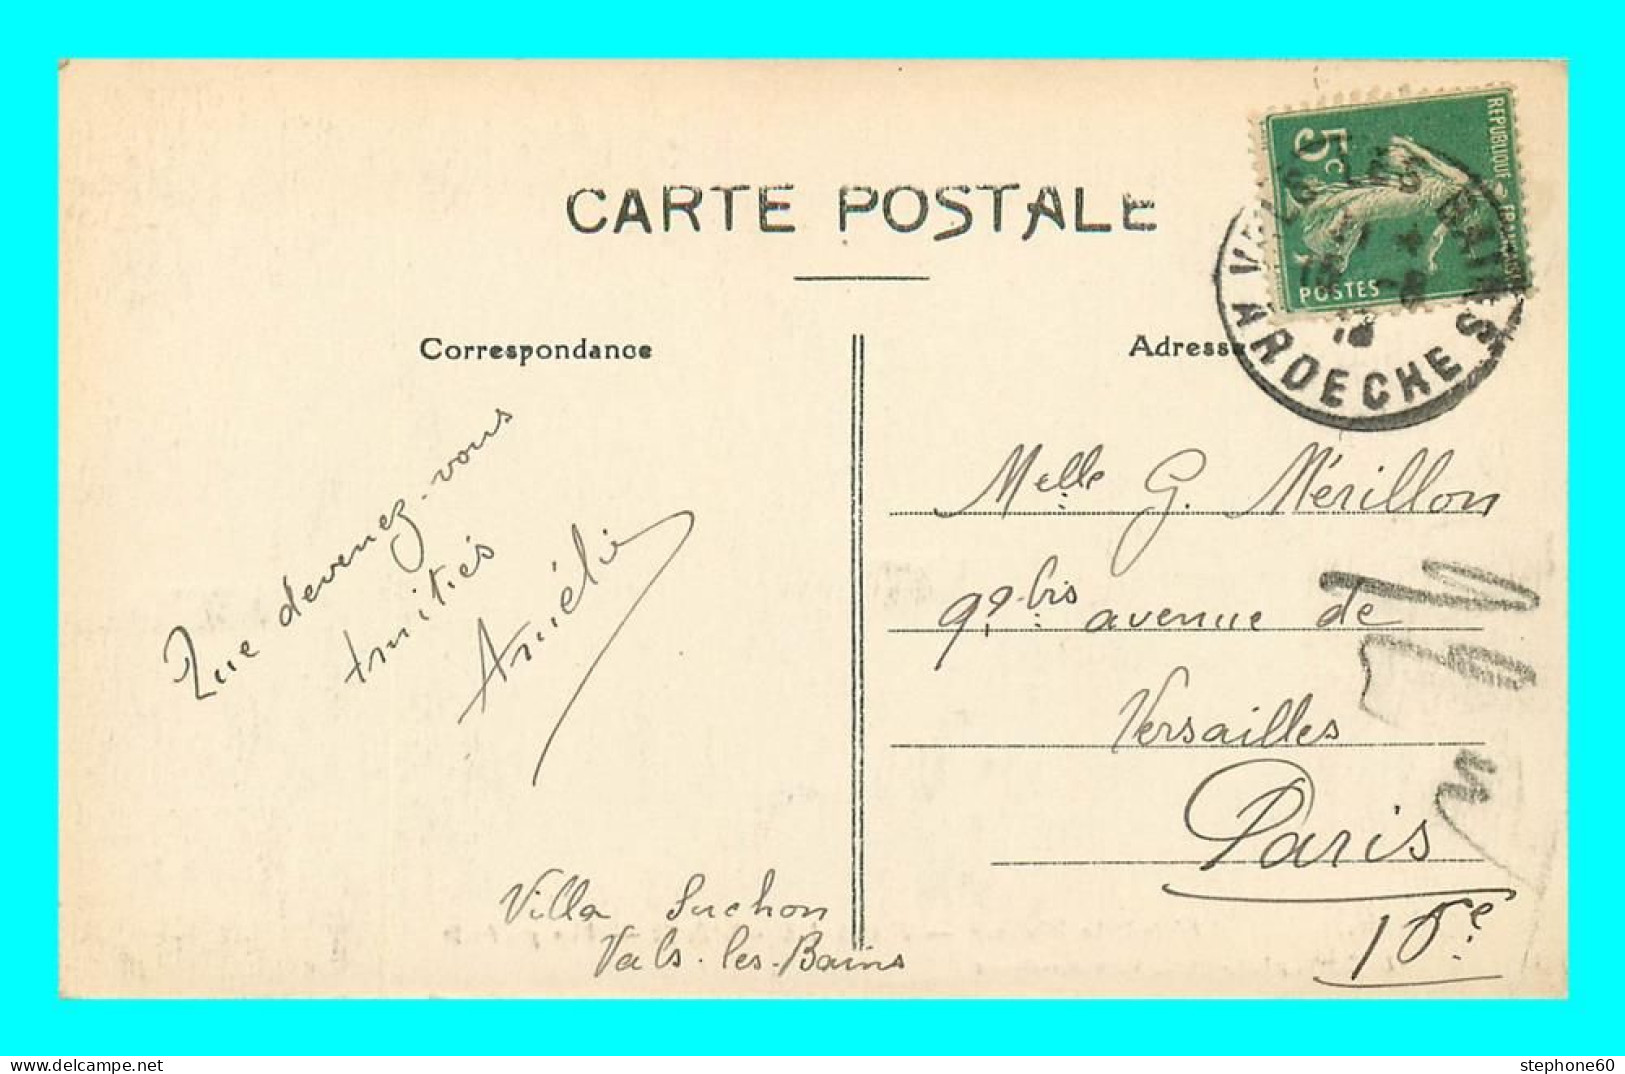 CARTE POSTALE
Correspondance
Adresse
REPUBLIQUE FRANÇAISE
5c
POSTES
VALS LES BAINS
ARDECHE
Que devenez-vous
Amitiés
Amélie
Villa Suchon
Vals-les-Bains
Melle G. Mérillon
99 bis avenue de
Versailles
Paris
16e
stephone60